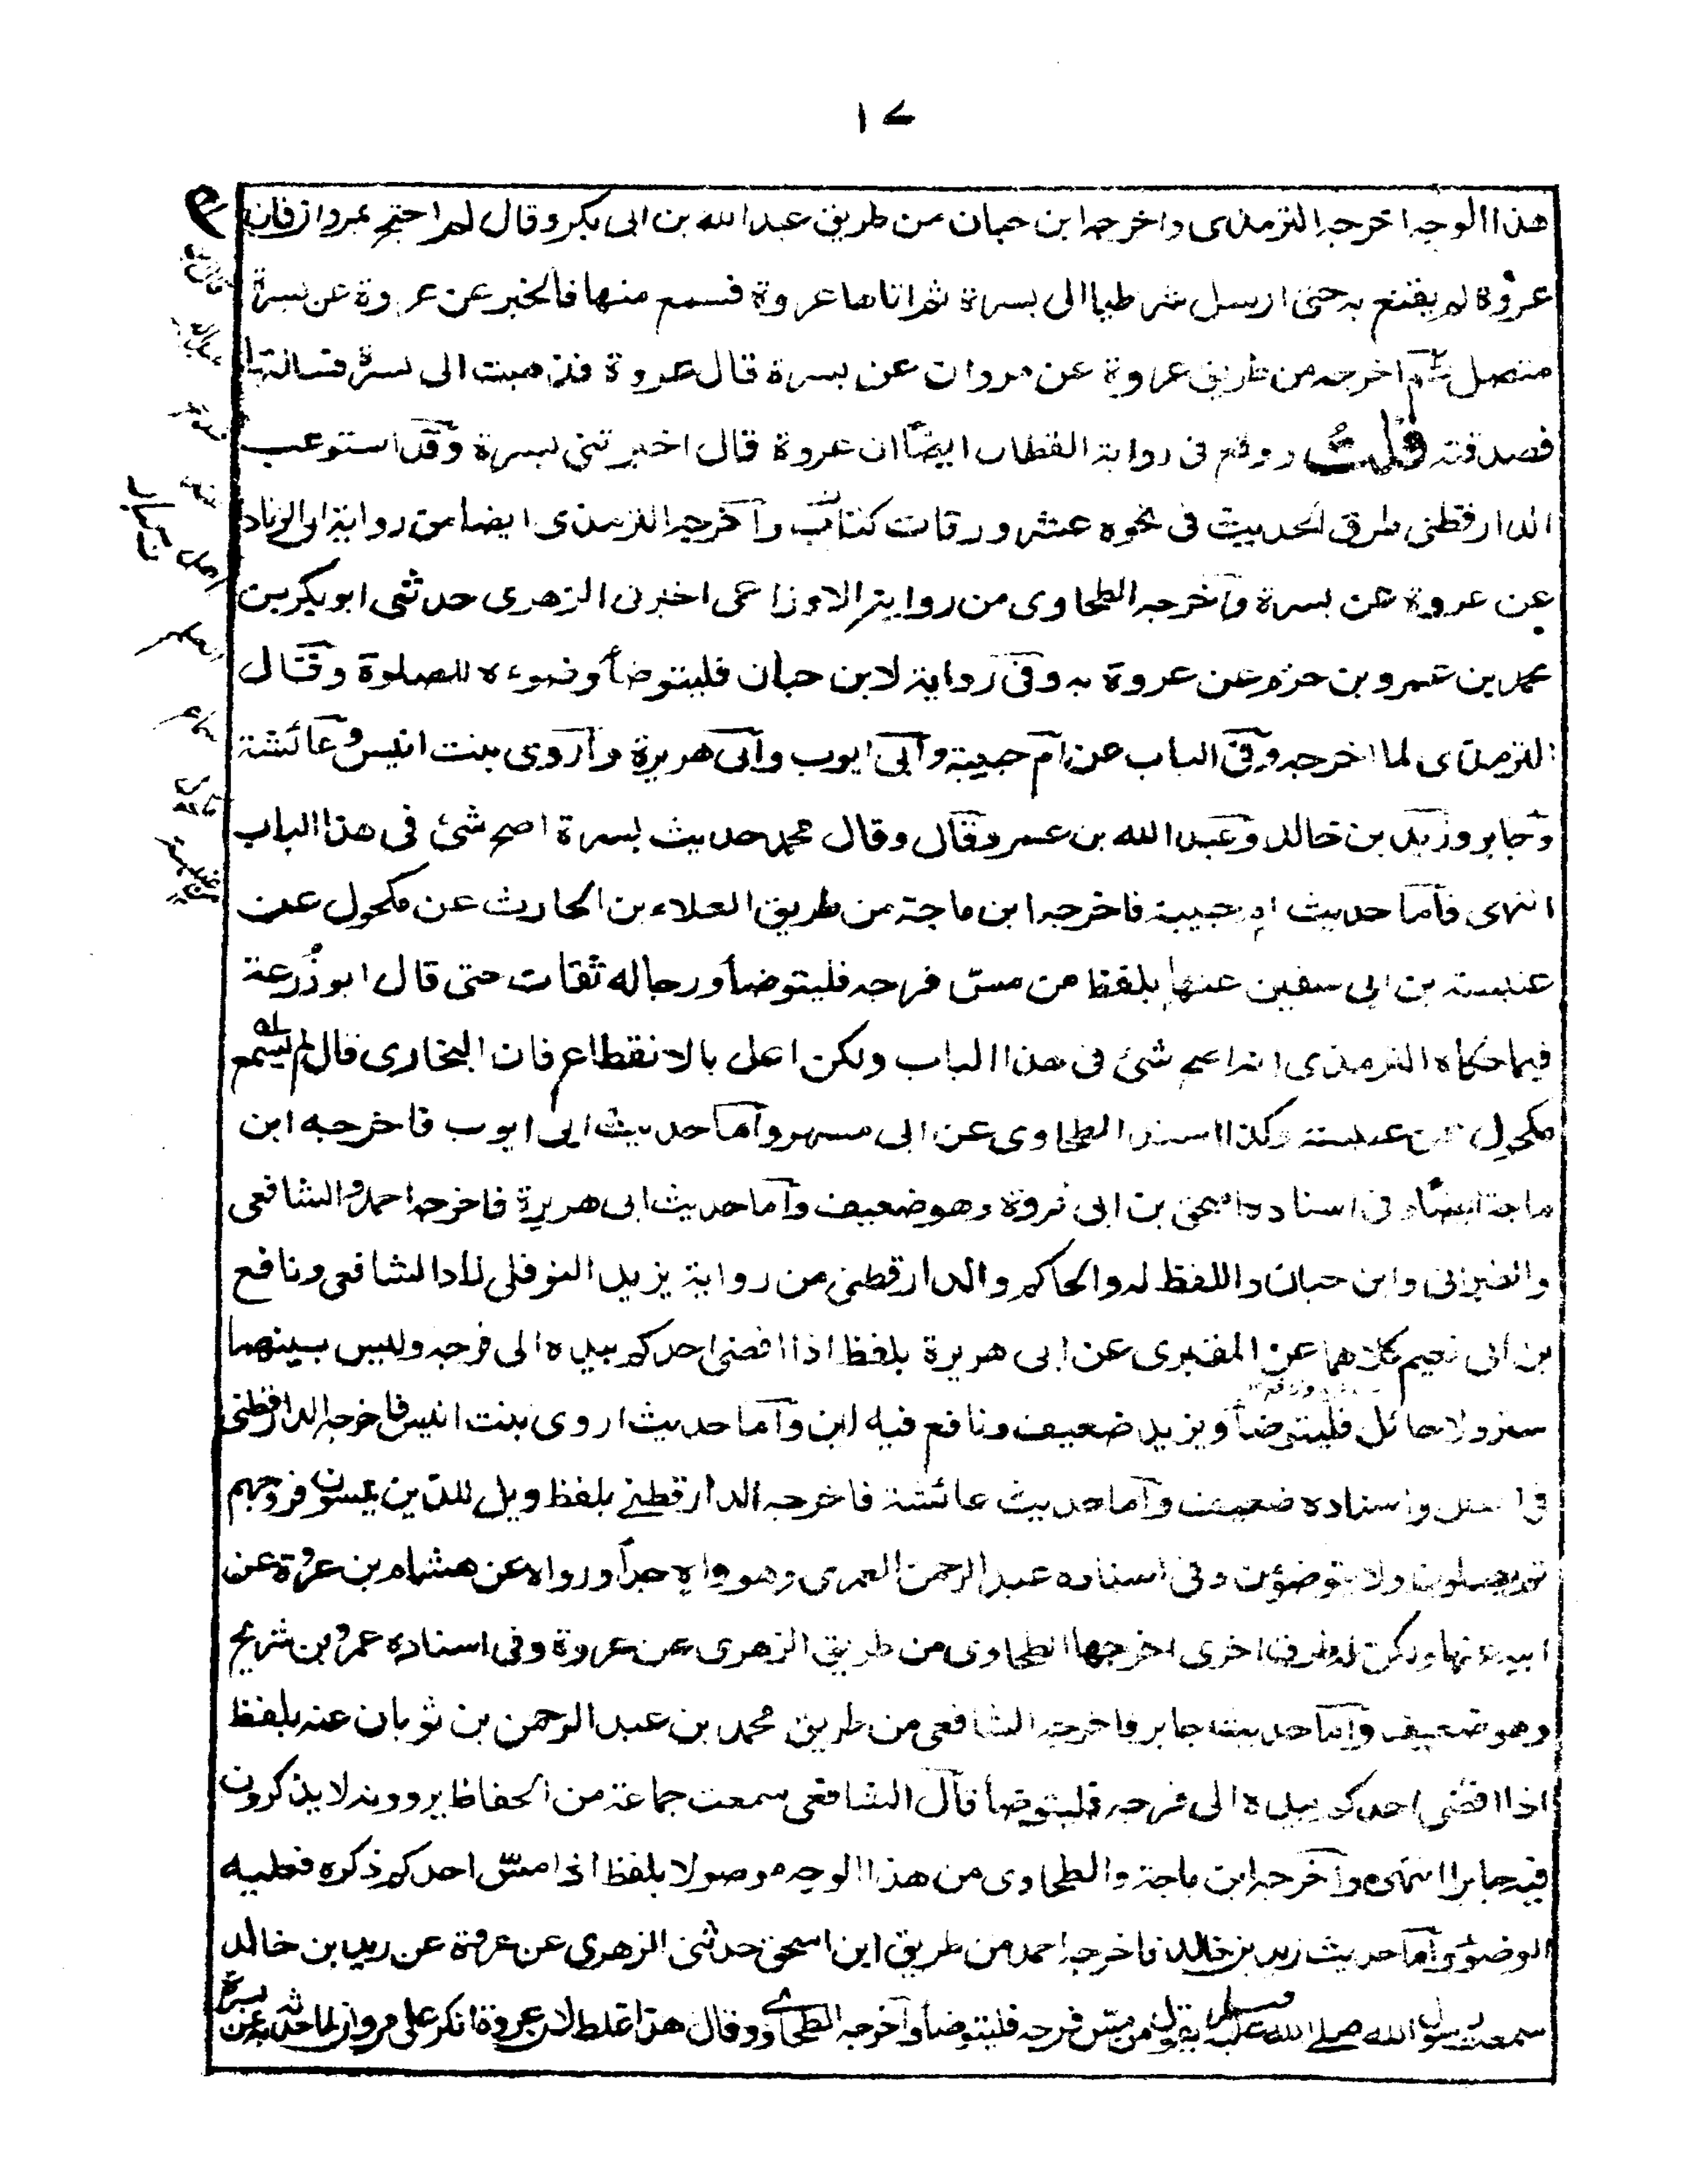 ١٧
هذا الوجه اخرجه الترمذى واخرجه ابن حبان من طريق عبد الله بن ابى بكر وقال لم احتج بمروان فان
عروة لم يقنع به حتى ارسل شرطيا الى بسرة ثم اتاها عروة فسمع منها فالخبر عن عروة عن بسرة
متصل ثم اخرجه من طريق عروة عن مروان عن بسرة قال عروة فذهبت الى بسرة فسالتها
فصدقته قلت ووقع فى رواية القطان ايضا ان عروة قال اخبرتنى بسرة وقد استوعب
الدارقطنى طرق الحديث فى نحوه عشر ورقات كتابه واخرجه الترمذى ايضا من رواية ابى الزناد
عن عروة عن بسرة واخرجه الطحاوى من رواية الاوزاعى اخبرنى الزهرى حدثنى ابو بكر بن
محمد بن عمرو بن حزم عن عروة به وفى رواية لابن حبان فليتوضأ وضوءه للصلوة وقال
الترمذى لما اخرجه وفى الباب عن ام حبيبة وابى ايوب وابى هريرة واروى بنت انيس وعائشة
وجابر وزيد بن خالد وعبد الله بن عمرو قال وقال محمد حديث بسرة اصح شئ فى هذا الباب
انتهى فأما حديث ام حبيبة فاخرجه ابن ماجة من طريق العلاء بن الحارث عن مكحول عن
عنبسة بن ابى سفين عنها بلفظ من مسّ فرجه فليتوضأ ورجاله ثقات حتى قال ابو زُرعة
فيما حكاه الترمذى انه اصح شئ فى هذا الباب ولكن اعل بالانقطاع فان البخارى قال لم يسمعه
مكحول عن عنبسة وكذا اسند الطحاوى عن ابى مسهر وأما حديث ابى ايوب فاخرجه ابن
ماجة ايضًا وفى اسناده اسحق بن ابى فروة وهو ضعيف وأما حديث ابى هريرة فاخرجه احمد والشافعى
والبزار وابن حبان واللفظ له والحاكم والدارقطنى من رواية يزيد النوفلى زاد الشافعى ونافع
بن ابى نعيم كلاهما عن المقبرى عن ابى هريرة بلفظ اذا افضى احدكم بيده الى فرجه وليس بينهما
ستر ولا حائل فليتوضأ ويزيد ضعيف ونافع فيه لين وأما حديث اروى بنت انيس فاخرجه الدارقطنى
فى العلل واسناده ضعيف وأما حديث عائشة فاخرجه الدارقطنى بلفظ ويل للذين يمسون فروجهم
ثم يصلون ولا يتوضؤن وفى اسناده عبد الرحمن العمرى وهو واهٍ جدًا ورواه عن هشام بن عروة عن
ابيه عنها ولكن له طرق اخرى اخرجها الطحاوى من طريق الزهرى عن عروة وفى اسناده عمر بن شريح
وهو ضعيف وأما حديث جابر فاخرجه الشافعى من طريق محمد بن عبد الرحمن بن ثوبان عنه بلفظ
اذا افضى احدكم بيده الى فرجه فليتوضأ قال الشافعى سمعت جماعة من الحفاظ يروونه لا يذكرون
فيه جابرا انتهى واخرجه ابن ماجة والطحاوى من هذا الوجه موصولا بلفظ اذا مسّ احدكم ذكره فعليه
الوضوء وأما حديث زيد بن خالد فاخرجه احمد من طريق ابن اسحق حدثنى الزهرى عن عروة عن زيد بن خالد
سمعت رسول الله صلى الله عليه وسلم يقول من مسّ فرجه فليتوضأ واخرجه الطحاوى وقال هذا غلط لان عروة انكر على مروان لما حدثه عن بسرة